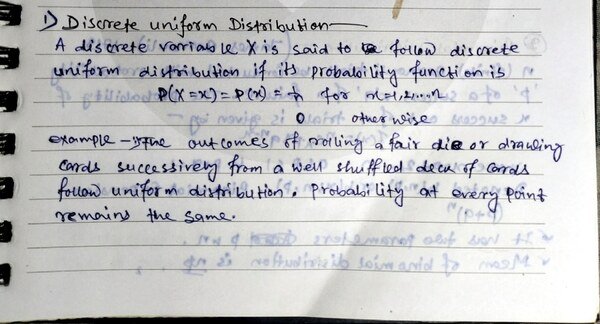 1) Discrete uniform Distribution—
A discrete variable X is said to follow discrete
uniform distribution if its probability function is
P(X=x) = P(x) = 1/n for x=1,2,...n
0 otherwise
example - The outcomes of rolling a fair die or drawing
cards successively from a well shuffled deck of cards
follow uniform distribution. Probability at every point
remains the same.